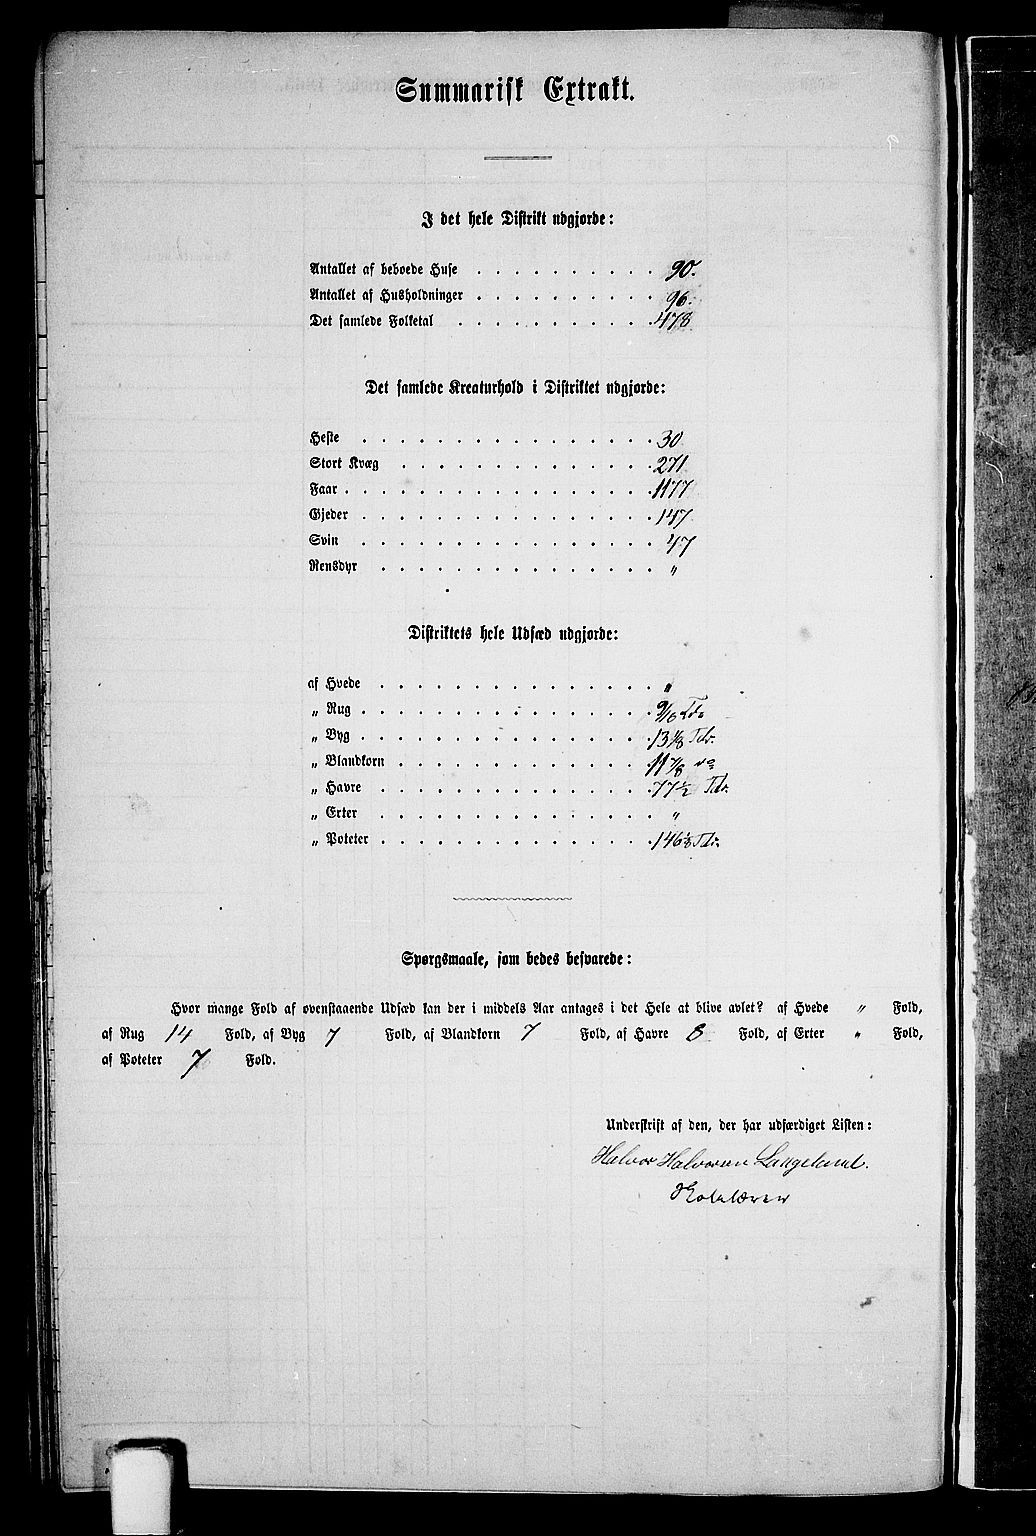 Summarisk Extrakt.
I det hele Distrikt udgjorde:
Antallet af beboede Huse . . . . . . . . . . 90.
Antallet af Husholdninger . . . . . . . . . . 96.
Det samlede Folketal . . . . . . . . . . . 478
Det samlede Kreaturhold i Distriktet udgjorde:
Heste . . . . . . . . . . . . . . . . 30
Stort Kvæg . . . . . . . . . . . . . . 271
Faar . . . . . . . . . . . . . . . . . 1177
Gjeder . . . . . . . . . . . . . . . . 147
Svin . . . . . . . . . . . . . . . . 47
Rensdyr . . . . . . . . . . . . . . . „
Distriktets hele Udsæd udgjorde:
af Hvede . . . . . . . . . . . . . . . „
„ Rug . . . . . . . . . . . . . . . .
„ Byg . . . . . . . . . . . . . . . . 13 1/8 Tdr.
„ Blandkorn . . . . . . . . . . . . . . 11 7/8
„ Havre . . . . . . . . . . . . . . . 77 1/2 Tdr.
„ Erter . . . . . . . . . . . . . . . „
„ Poteter . . . . . . . . . . . . . . . 146 1/8 Tdr.
Spørgsmaale, som bedes besvarede:
Hvor mange Fold af ovenstaaende Udsæd kan der i middels Aar antages i det Hele at blive avlet? af Hvede „ Fold,
af Rug 14 Fold, af Byg 7 Fold, af Blandkorn 7 Fold, af Havre 8 Fold, af Erter „ Fold,
af Poteter 7 Fold.
Underskrift af den, der har udfærdiget Listen:
Halvor Halvorsen Langeland.
Skolelærer